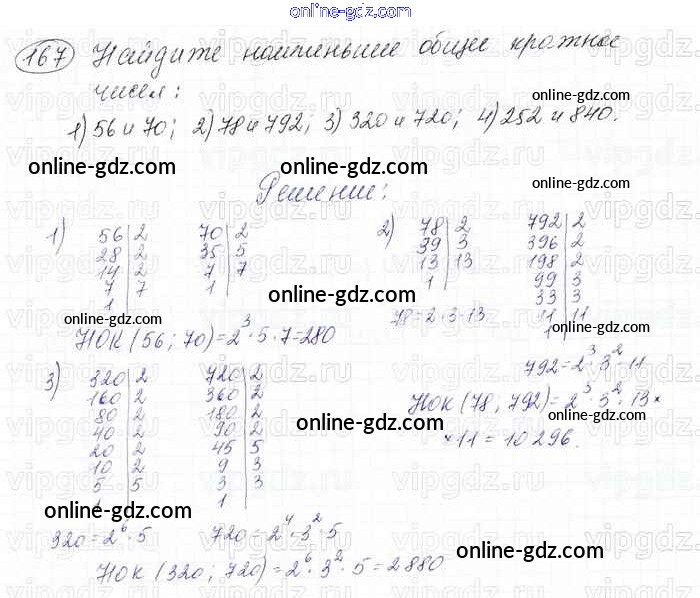 online-gdz.com
167 Найдите наименьшее общее кратное
чисел:
1) 56 и 70; 2) 78 и 792; 3) 320 и 720; 4) 252 и 840.
online-gdz.com
online-gdz.com
online-gdz.com
Решение:
1)
56|2
28|2
14|2
7|7
1
70|2
35|5
7|7
1
НОК (56; 70) = 2³·5·7=280
2)
78|2
39|3
13|13
1
78=2·3·13
792|2
396|2
198|2
99|3
33|3
11|11
1
792=2³·3²·11
НОК (78; 792)=2³·3²·13×
×11=10296.
online-gdz.com
online-gdz.com
online-gdz.com
3)
320|2
160|2
80|2
40|2
20|2
10|2
5|5
1
320=2⁶·5
720|2
360|2
180|2
90|2
45|5
9|3
3|3
1
720=2⁴·3²·5
НОК (320; 720)=2⁶·3²·5=2880
online-gdz.com
online-gdz.com
online-gdz.com
online-gdz.com
online-gdz.com
vipgdz.com